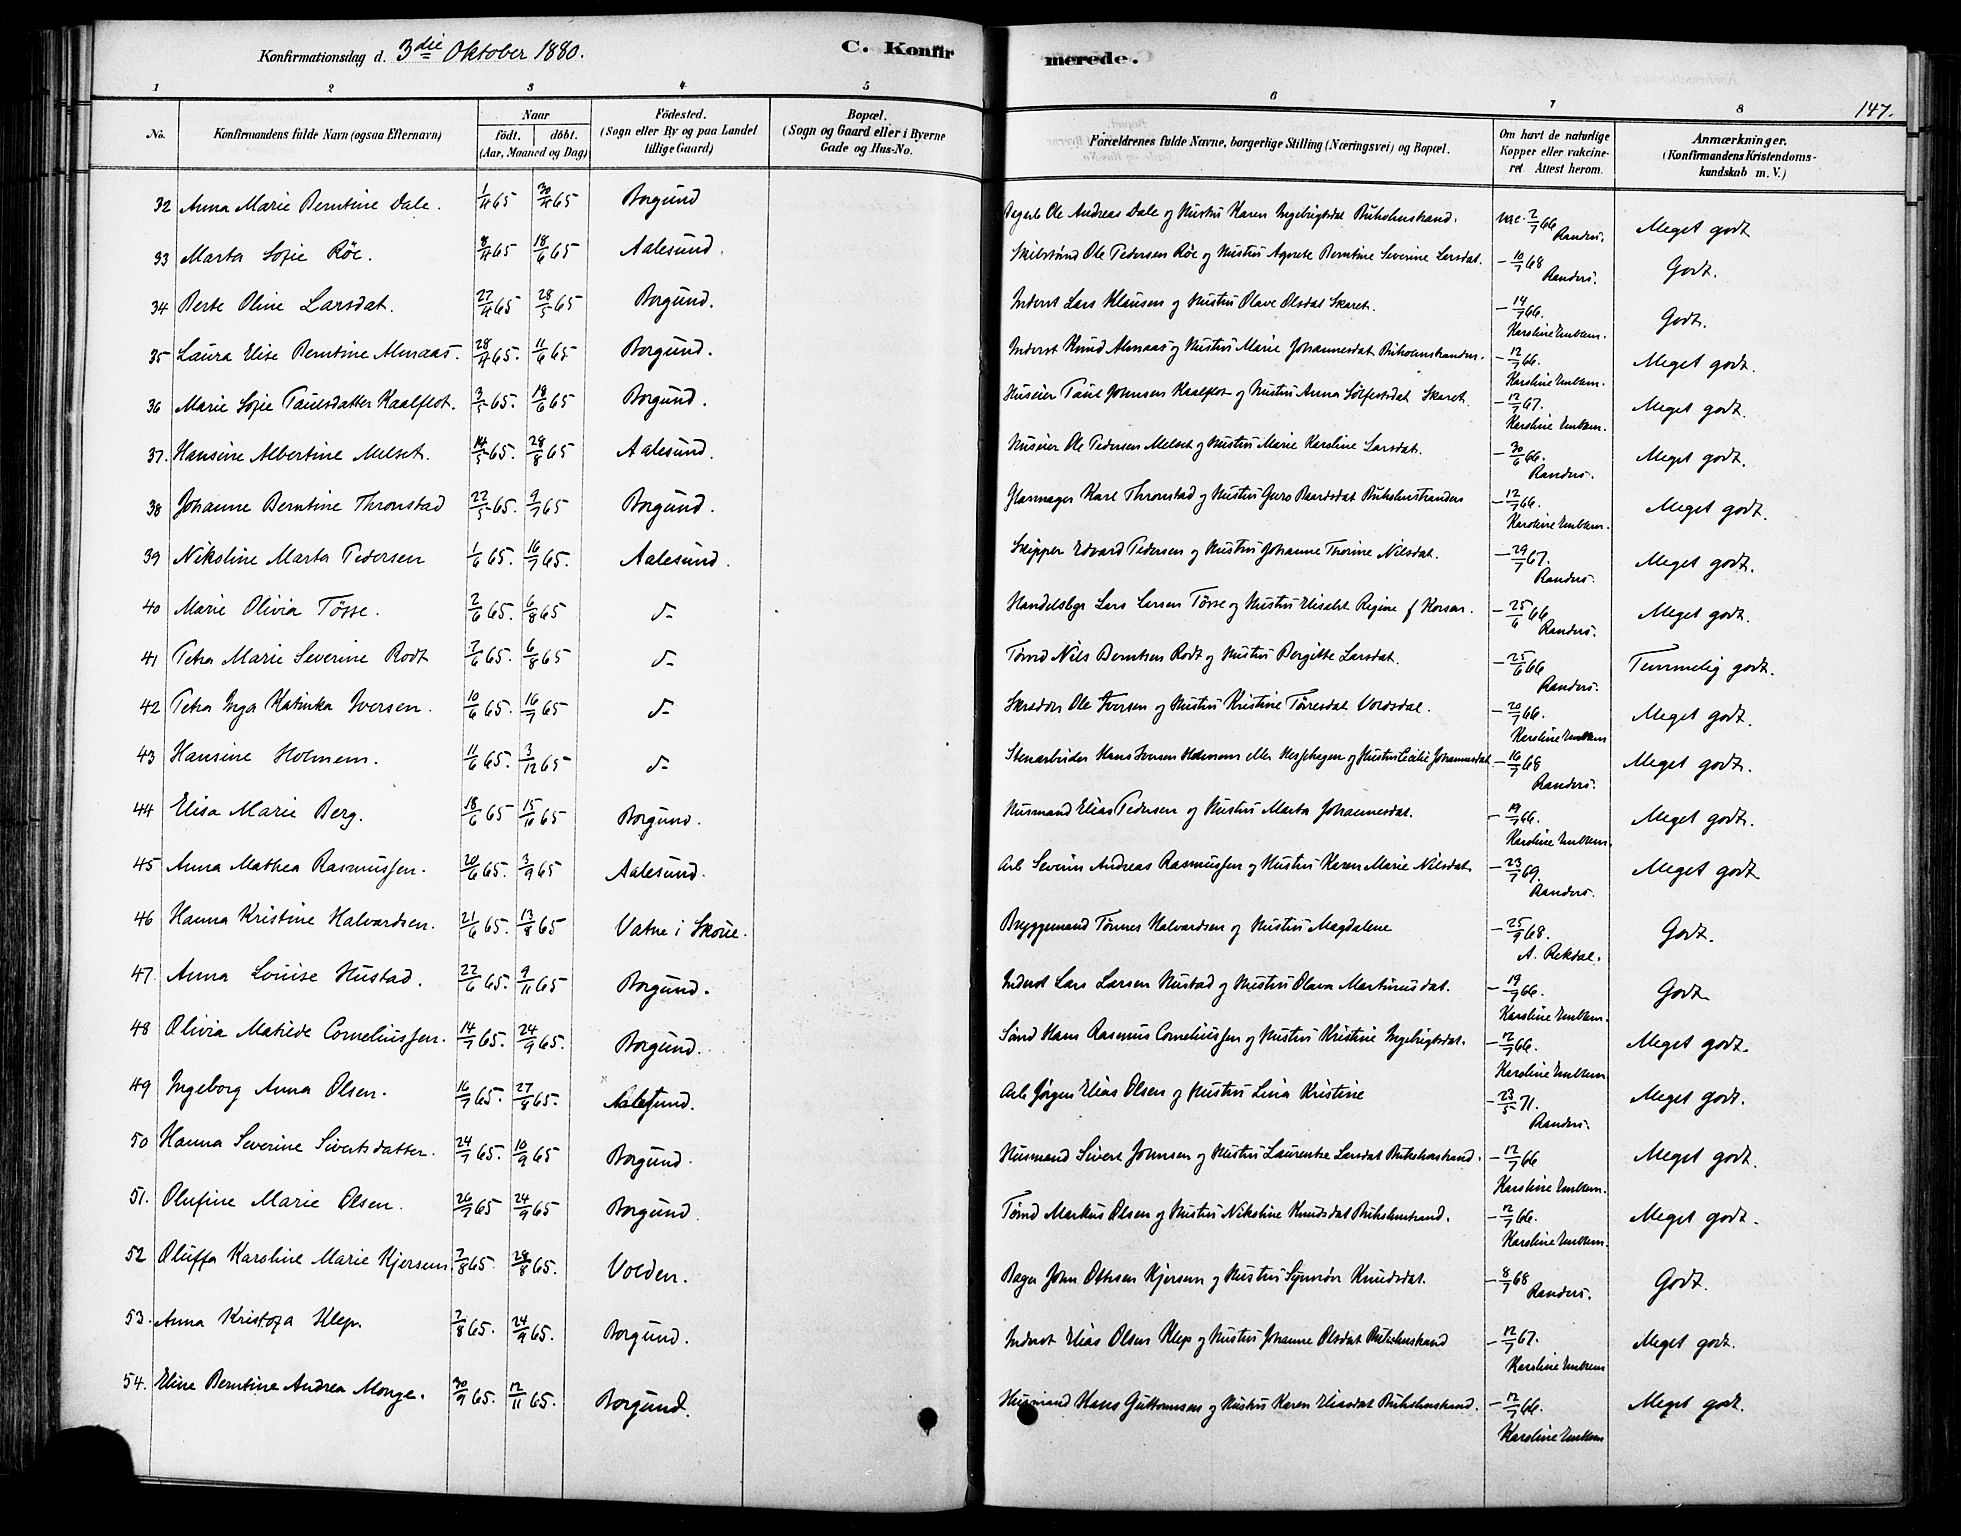 Konfirmationsdag d. 3die Oktober 1880.
C. Konfir
merede.
147.
1 2 3 4 5 6 7 8
No. Konfirmandens fulde Navn (ogsaa Efternavn) Naar født. døbt. (Aar, Maaned og Dag) Fødested. (Sogn eller By og paa Landet tillige Gaard) Bopæl. (Sogn og Gaard eller i Byerne Gade og Hus-No. Forældrenes fulde Navne, borgerlige Stilling (Næringsvei) og Bopæl. Om havt de naturlige Kopper eller vakcineret Attest herom. Anmærkninger. (Konfirmandens Kristendomskundskab m. V.)
32 Anna Marie Berntine Dale. 1/4 65 30/4 65 Borgund Ole Andreas Dale og Hustru Karen Ingebrigtsdat Buholmstrand. vac. 2/7 66 Randers. Meget godt
33 Marta Sofie Røe. 8/4 65 18/6 65 Aalesund. Ole Pedersen Røe og Hustru Agnete Berntine Severine Larsdat. – 10/7 68 Randers. Godt.
34 Berte Oline Larsdat. 27/4 65 28/5 65 Borgund. Inderst Lars Klausen og Hustru Olave Olsdat Skaret. – 14/7 66. Karoline Emblem. Godt.
35 Laura Elise Berntine Almaas. 28/4 65. 11/6 65 Borgund. Inderst Knud Almaas og Hustru Marie Johannesdat Buholmstranden. – 12/7 66. Karoline Emblem. Meget godt.
36 Marie Sofie Paulsdatter Kaalflot. 3/5 65. 18/6 65 Borgund. Huseier Paul Johnsen Kaalflot og Hustru Anna Sølfestsdat Skaret – 12/7 67. Karoline Emblem. Meget godt.
37. Hansine Albertine Melset. 14/5 65. 28/8 65 Aalesund. Huseier Ole Pedersen Melset og Hustru Marie Karoline Larsdat. – 30/6 66. Randers. Meget godt.
38 Johanne Berntine Thronstad 22/5 65. 9/7 65 Borgund. Glarmager Karl Thronstad og Hustru Guro Baardsdat Buholmstranden – 12/7 66. Karoline Emblem. Meget godt.
39 Nikoline Marta Pedersen 1/6 65. 16/7 65. Aalesund. Skipper Edvard Pedersen og Hustru Johanne Thorine Nilsdat. – 29/7 67. Randers. Meget godt.
40 Marie Olivia Tösse. 2/6 65. 6/8 65 d– Handelsbgr Lars Larsen Tösse og Hustru Elisabet Regine f Korsen. – 25/6 66 Randers. Meget godt.
41 Petra Marie Severine Rodt 7/6 65. 6/8 65 d– Tømd Nils Berntsen Rodt og Hustru Bergitte Larsdat. – 25/6 66 Randers. Temmelig godt.
42 Petra Inga Katinka Iversen. 10/6 65. 16/7 65 d– Skrædder Ole Iversen og Hustru Kristine Tørresdat Vordsdal. – 20/7 66. Karoline Emblem Meget godt.
43 Hansine Holmem. 11/6 65. 3/12 65 d– Stenarbeider Hans Iversen Holmem eller Hessehagen og Hustru Cecilie Johannesdat – 16/7 68 Randers. Meget godt.
44 Elisa Marie Berg. 18/6 65 15/10 65 Borgund. Husmand Elias Pedersen og Hustru Marta Johannesdat. – 19/7 66. Karoline Emblem. Meget godt.
45 Anna Mathea Rasmussen. 20/6 65. 3/9 65 Aalesund. Arb Severin Andreas Rasmussen og Hustru Karen Marie Nilsdat – 23/7 69. Randers. Meget godt
46 Hanna Kristine Halvardsen. 21/6 65. 13/8 65 Vatne i Skoue. Bryggemand Tønnes Halvardsen og Hustru Magdalene – 25/9 68. A. Rekdal. Godt.
47. Anna Louise Hustad. 22/6 65. 9/11 65 Borgund. Inderst Lars Larsen Hustad og Hustru Olava Martinusdat. – 19/7 66. Karoline Emblem. Godt
48 Olivia Matilde Corneliussen. 14/7 65. 24/9 65. Borgund. Sømd Hans Rasmus Corneliussen og Hustru Kristine Ingebrigtsdat. – 12/7 66. Karoline Emblem Meget godt.
49 Ingeborg Anna Olsen. 16/7 65. 27/8 65. Aalesund. Arb Jørgen Elias Olsen og Hustru Lina Kristine – 23/5 71. Randers. Meget godt.
50 Hanna Severine Sivertsdatter. 24/7 65. 10/9 65 Borgund. Husmand Sivert Johnsen og Hustru Laurentse Larsdat Buholmstrand. – 12/7 66 Karoline Emblem. Meget godt.
51. Olufine Marie Olsen. 26/7 65 24/9 65 Borgund. Tømd Markus Olsen og Hustru Nikoline Knudsdat Buholmstrand. – 12/7 66. Karoline Emblem. Meget godt.
52 Oluffa Karoline Marie Kjersem 2/8 65. 28/8 65. Volden. Bager John Ottesen Kjersem og Hustru Synnøv Knudsdat. – 8/7 68 Randers. Godt.
53. Anna Kristofa Klep. 7/8 65. 24/9 65. Borgund. Inderst Elias Olsen Klep og Hustru Johanne Olsdat Buholmstrand – 12/7 67. Karoline Emblem Meget godt.
54. Eline Berntine Andrea Monge. 30/9 65. 12/11 65. Borgund. Husmand Hans Guttormsen og Hustru Karen Eliasdat Buholmstrand. – 12/7 66. Karoline Emblem Meget godt.